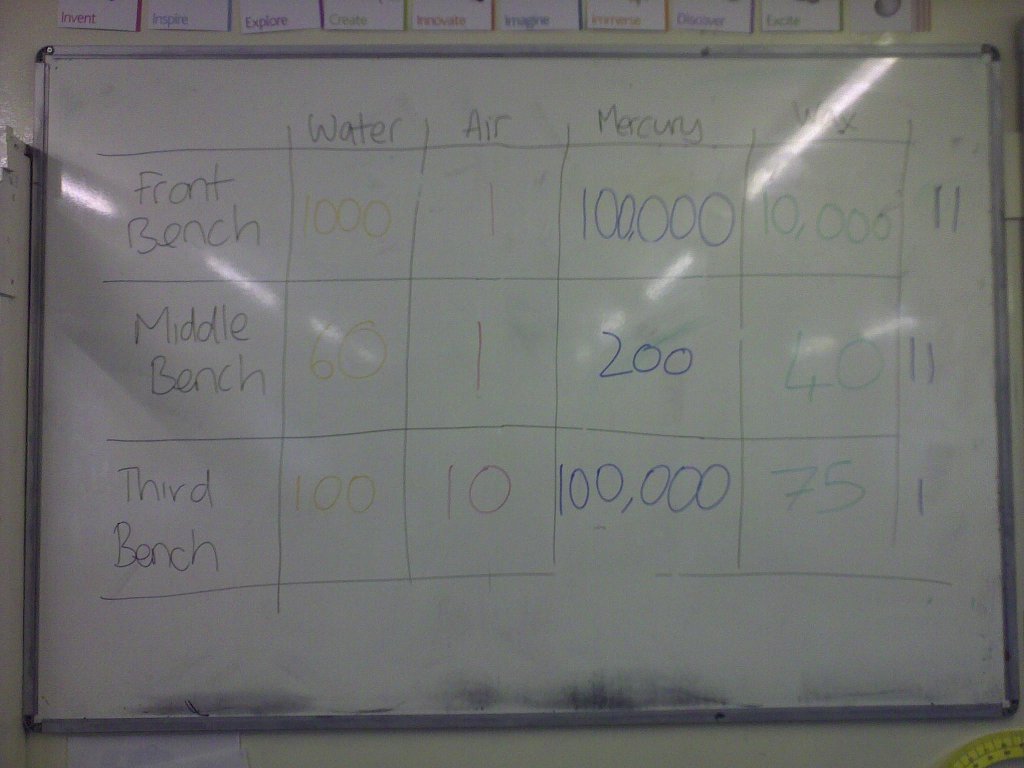 Invent Inspire Explore Create Innovate Imagine Immerse Discover Excite
Water Air Mercury Wax
Front
Bench 1000 1 100,000 10,000 11
Middle
Bench 60 1 200 40 11
Third 100 10 100,000 75 1
Bench